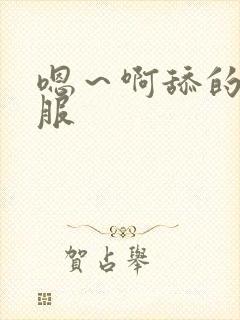 嗯～啊舔的
服
贺占举